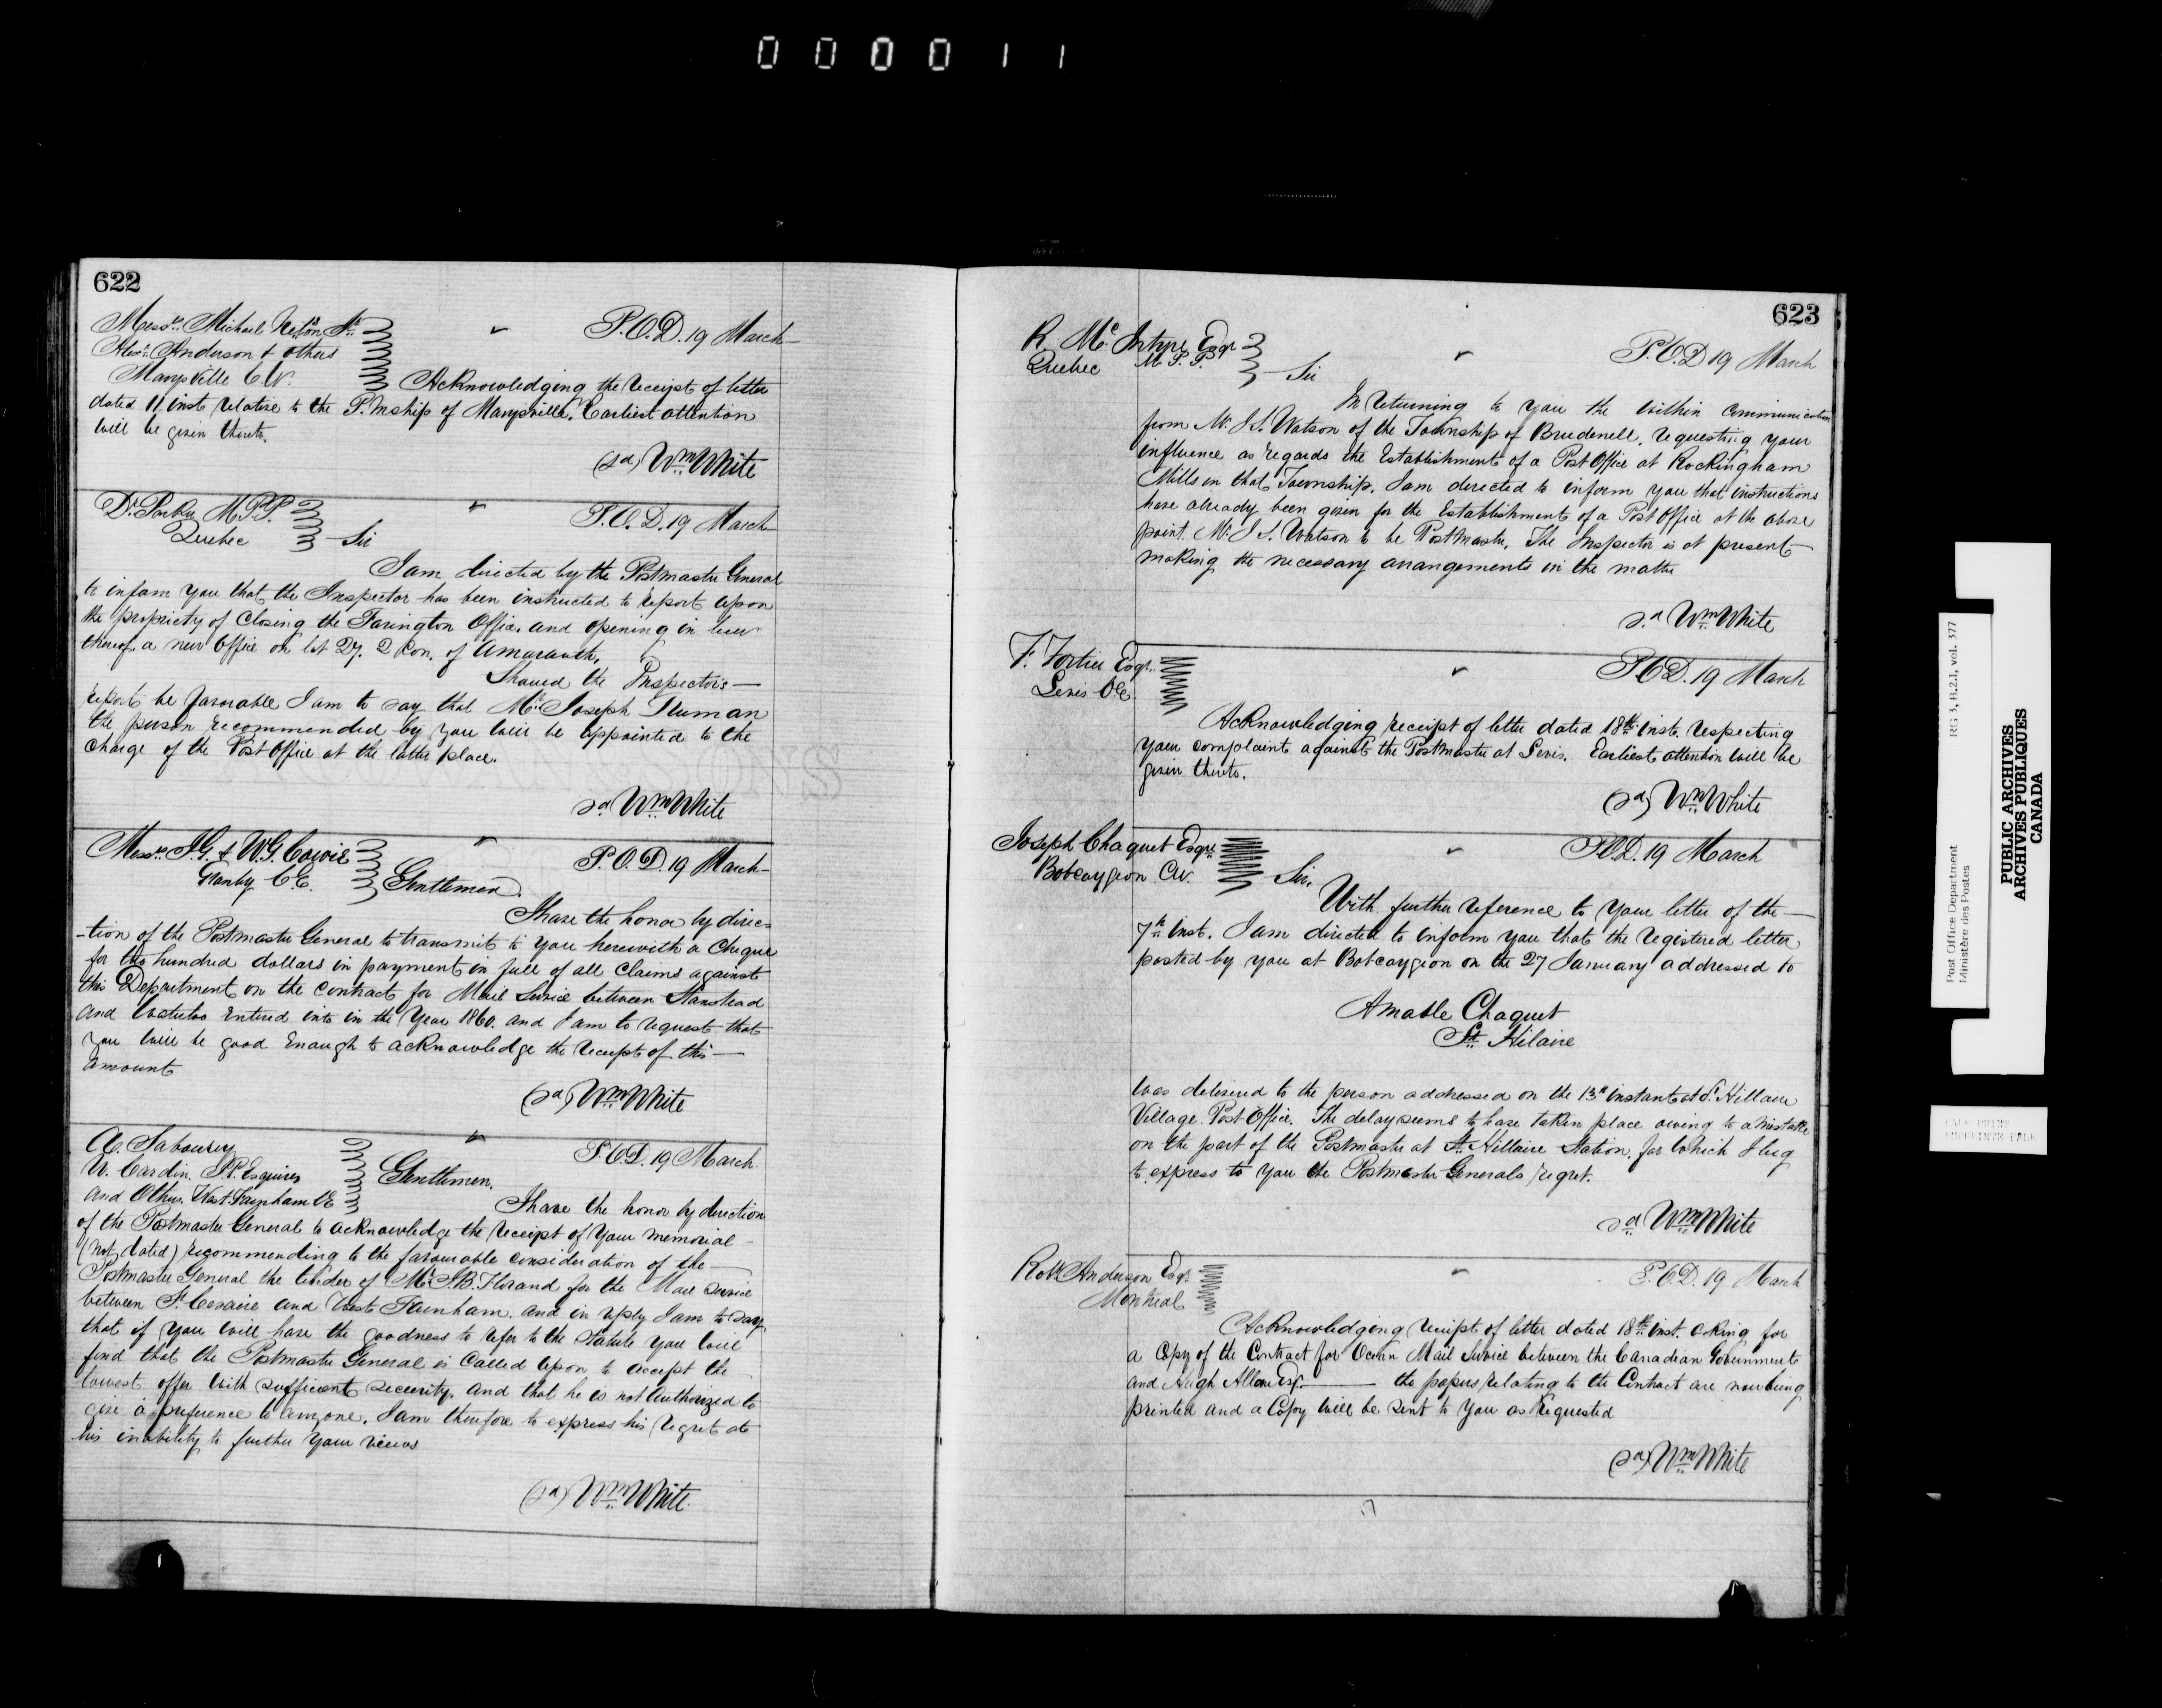 000011
622
Messrs. Michael Jr.
Alexr. Anderson & others
Marysville C.W.
P.O.D. 19 March
Acknowledging the receipt of letter
dated 11 inst relative to the P.Mship of Marysville. Earliest attention
will be given thereto.
(sd) Wm White
Dr. Parker M.P.P.
Quebec
Sir
P.O.D. 19 March
I am directed by the Postmaster General
to inform you that the Inspector has been instructed to report upon
the propriety of closing the Farington Office, and opening in lieu
thereof a new Office on lot 27. 2 Con. of Amaranth.
Should the Inspector's
report be favorable I am to say that Mr. Joseph Truman
the person recommended by you will be appointed to the
charge of the Post Office at the latter place.
sd Wm White
Messrs. J.G. & W.G. Cowie
Granby C.E.
Gentlemen.
P.O.D. 19 March
I have the honor by direc-
-tion of the Postmaster General to transmit to you herewith a Cheque
for two hundred dollars in payment in full of all claims against
this Department on the contract for Mail Service between Stanstead
and Waterloo entered into in the Year 1860. and I am to request that
you will be good enough to acknowledge the receipt of this
amount
(sd) Wm White
A. Sabourin
N. Cardin J.P. Esquires
and Others. West Farnham CE
Gentlemen.
P.O.D. 19 March
I have the honor by direction
of the Postmaster General to acknowledge the receipt of Your memorial
(not dated) recommending to the favourable consideration of the
Postmaster General the tender of Mr. J.B. for the Mail service
between St. Cesaire and West Farnham. and in reply I am to say
that if you will have the goodness to refer to the Statute you will
find that the Postmaster General is called upon to accept the
lowest offer with sufficient security, and that he is not authorized to
give a preference to anyone. I am therefore to express his regret at
his inability to further your views
(sd) Wm White
623
R. McIntyre Esqr
M.P.P.
Quebec
Sir
P.O.D 19 March
In returning to you the within communication
from Mr. J.S. Watson of the Township of Brudenell, requesting your
influence as regards the Establishment of a Post Office at Rockingham
Mills in that Township, I am directed to inform you that instructions
have already been given for the Establishment of a Post Office at the above
point. Mr. J.S. Watson to be Postmaster. The Inspector is at present
making the necessary arrangements in the matter
sd Wm White
F. Fortier Esqr.
Levis CE.
P.O.D. 19 March
Acknowledging receipt of letter dated 18th inst. respecting
your complaint against the Postmaster at Levis. Earliest attention will be
given thereto.
(sd) Wm White
Joseph Choquet Esqre
Bobcaygeon C.W.
Sir.
P.O.D. 19 March
With further reference to Your letter of the
7th inst. I am directed to inform you that the registered letter
posted by you at Bobcaygeon on the 27 January addressed to
Amable Choquet
St. Hilaire
was delivered to the person addressed on the 13th instant at St. Hillaire
Village Post Office. The delay seems to have taken place owing to a mistake
on the part of the Postmaster at St. Hillaire Station, for which I beg
to express to you the Postmaster Generals regret.
sd Wm White
Robt. Anderson Esqr.
Montreal
P.O.D. 19 March
Acknowledging receipt of letter dated 18th inst. asking for
a Copy of the Contract for Ocean Mail Service between the Canadian Government
and Hugh Allan Esqr. the papers relating to the Contract are now being
printed and a Copy will be sent to you as requested
(sd) Wm White
Post Office Department
Ministère des Postes
RG 3, B.2.1, vol. 377
PUBLIC ARCHIVES
ARCHIVES PUBLIQUES
CANADA